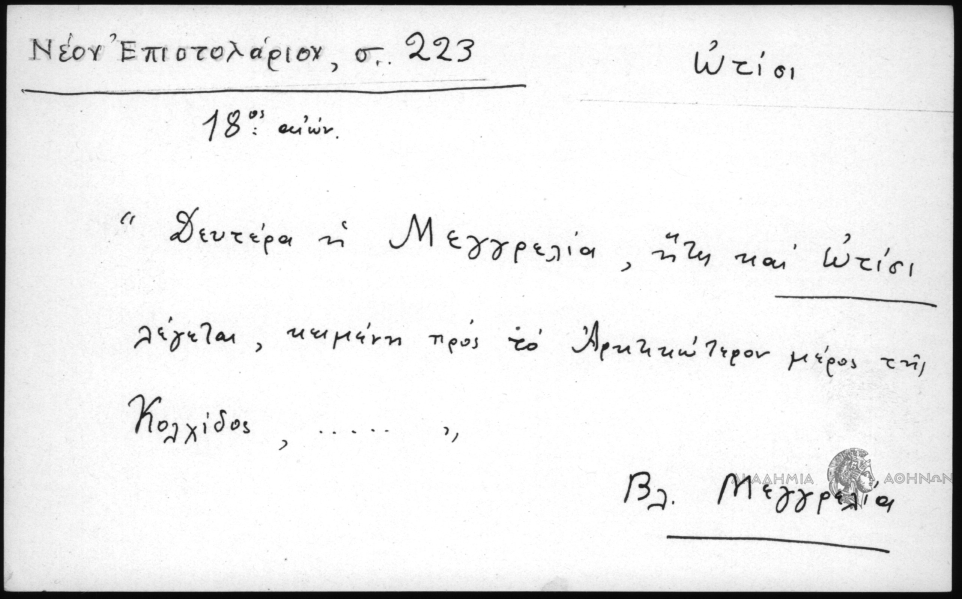 Νέον Ἐπιστολάριον, σ. 223
Ὠτίσι
18ος αἰών.
“ Δευτέρα ἡ Μεγγρελία, ἥτις καὶ Ὠτίσι
λέγεται, κειμένη πρός τό Ἀρκτικώτερον μέρος τῆς
Κολχίδος, ..... ”
Βλ. Μεγγρελία
ΑΚΑΔΗΜΙΑ ΑΘΗΝΩΝ